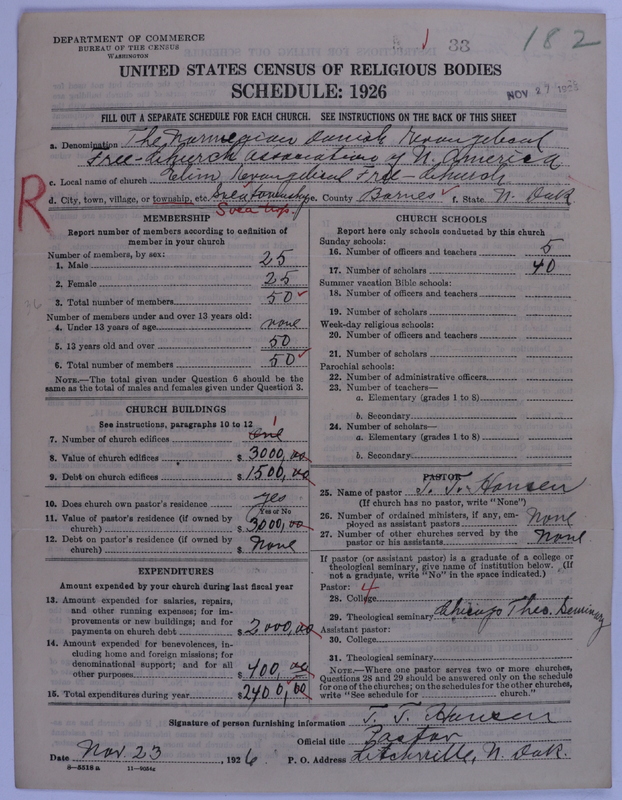 182
33
DEPARTMENT OF COMMERCE
BUREAU OF THE CENSUS
WASHINGTON
UNITED STATES CENSUS OF RELIGIOUS BODIES
SCHEDULE: 1926
NOV 27 1926
FILL OUT A SEPARATE SCHEDULE FOR EACH CHURCH. SEE INSTRUCTIONS ON THE BACK OF THIS SHEET
a. Denomination The Norwegian Danish Evangelical
Free-Church association of N. America
c. Local name of church Elim Evangelical Free-Church
d. City, town, village, or township, etc. Svea township e. County Barnes f. State N. Dak
R
Svea twp.
MEMBERSHIP
Report number of members according to definition of
member in your church
Number of members, by sex:
1. Male 25
2. Female 25
3. Total number of members 50
Number of members under and over 13 years old:
4. Under 13 years of age none
5. 13 years old and over 50
6. Total number of members 50
NOTE.—The total given under Question 6 should be the
same as the total of males and females given under Question 3.
CHURCH BUILDINGS
See instructions, paragraphs 10 to 12
7. Number of church edifices one 1
8. Value of church edifices $ 3000,00
9. Debt on church edifices $ 1500,00
10. Does church own pastor's residence yes
Yes or No
11. Value of pastor's residence (if owned by
church) $ 3000,00
12. Debt on pastor's residence (if owned by
church) $ None
EXPENDITURES
Amount expended by your church during last fiscal year
13. Amount expended for salaries, repairs,
and other running expenses; for im-
provements or new buildings; and for
payments on church debt $ 2000,00
14. Amount expended for benevolences, in-
cluding home and foreign missions; for
denominational support; and for all
other purposes $ 400,00
15. Total expenditures during year $ 2400,00
CHURCH SCHOOLS
Report here only schools conducted by this church
Sunday schools:
16. Number of officers and teachers 5
17. Number of scholars 40
Summer vacation Bible schools:
18. Number of officers and teachers
19. Number of scholars
Week-day religious schools:
20. Number of officers and teachers
21. Number of scholars
Parochial schools:
22. Number of administrative officers
23. Number of teachers—
a. Elementary (grades 1 to 8)
b. Secondary
24. Number of scholars—
a. Elementary (grades 1 to 8)
b. Secondary
PASTOR
25. Name of pastor T. T. Hansen
(If church has no pastor, write "None")
26. Number of ordained ministers, if any, em-
ployed as assistant pastors None
27. Number of other churches served by the
pastor or his assistants None
If pastor (or assistant pastor) is a graduate of a college or
theological seminary, give name of institution below. (If
not a graduate, write "No" in the space indicated.)
Pastor: 4
28. College
29. Theological seminary Chicago Theo. Seminary
Assistant pastor:
30. College
31. Theological seminary
NOTE.—Where one pastor serves two or more churches,
Questions 28 and 29 should be answered only on the schedule
for one of the churches; on the schedules for the other churches,
write "See schedule for church."
Signature of person furnishing information T. T. Hansen
Official title Pastor
Date Nov. 23, 1926 P. O. Address Litchville, N. Dak.
8—5518a 11—9034